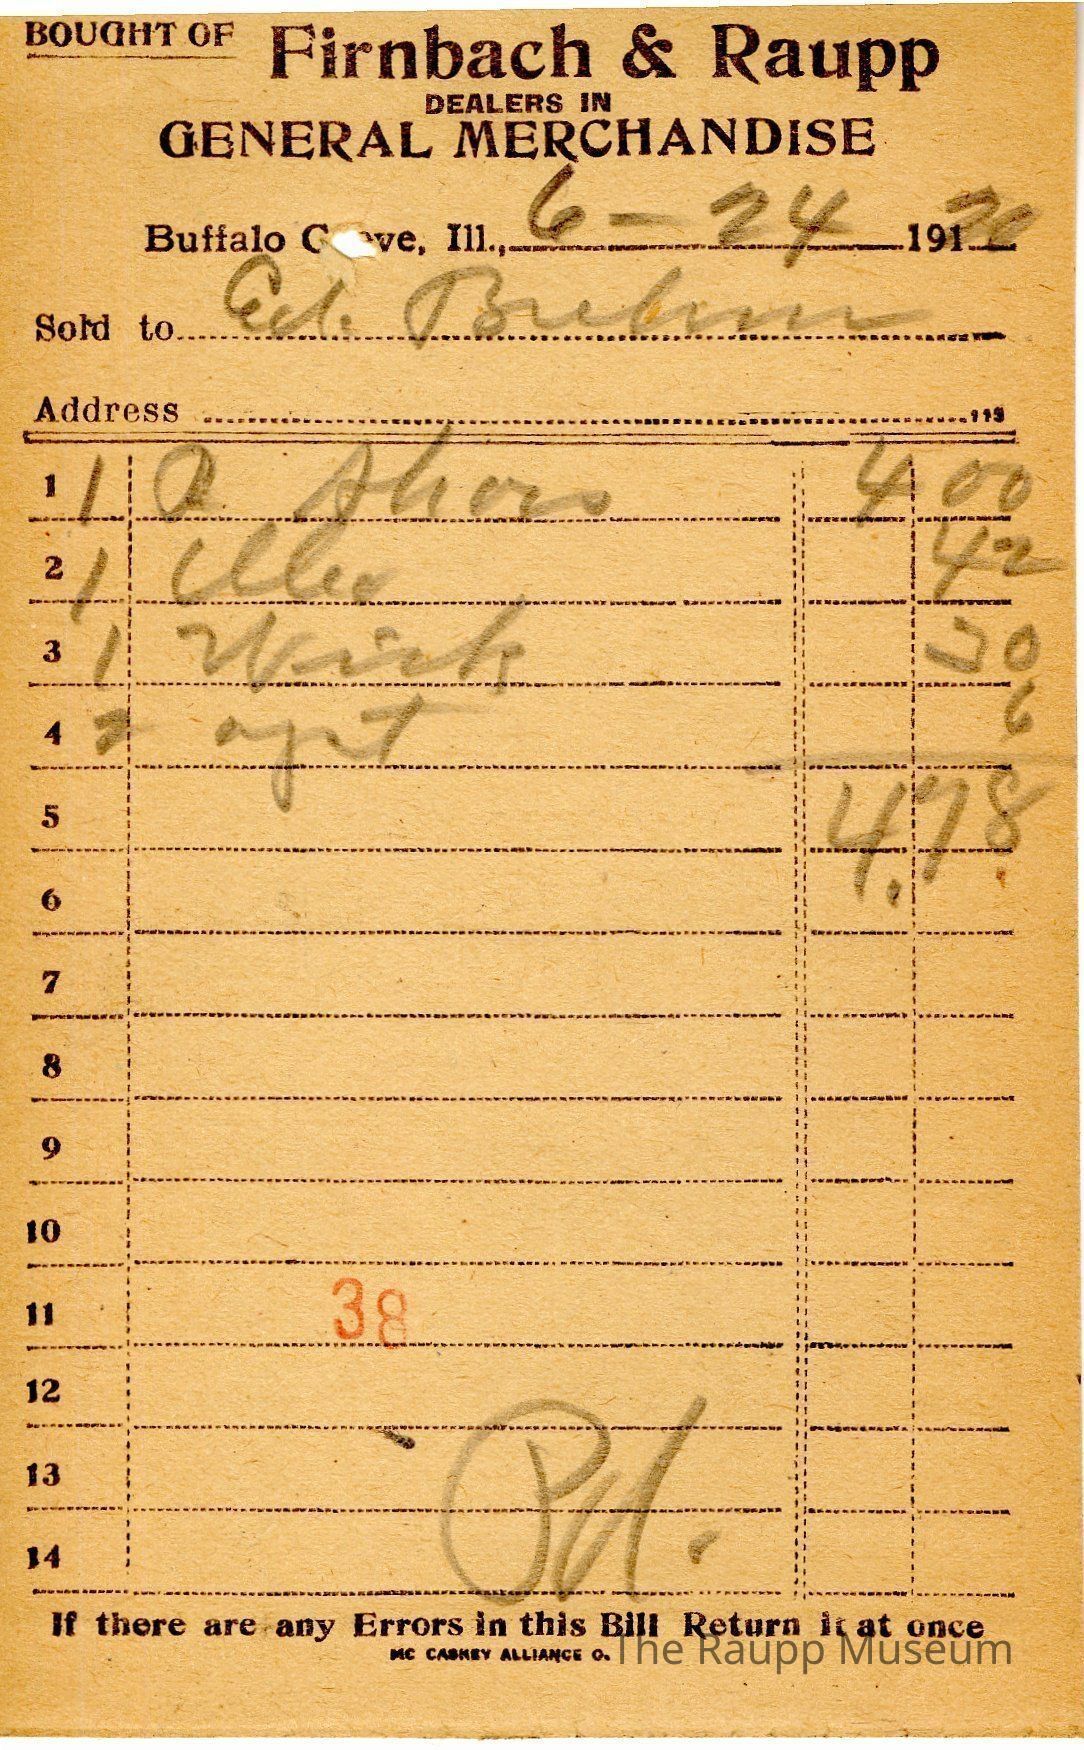 BOUGHT OF Firnbach & Raupp
DEALERS IN
GENERAL MERCHANDISE
Buffalo G ve, Ill., 6-24 1920
Sold to Ed. Brehm
Address
1 1 P Shoes 4 00
2 1 42
3 1 Wick 30
4 2 6
5 4.78
6
7
8
9
10
11 38
12
13 Pd.
14
If there are any Errors in this Bill Return it at once
MC CASKEY ALLIANCE O.
The Raupp Museum